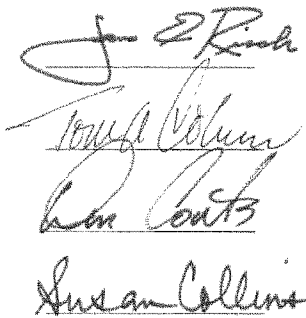 Jim E Risch
Tom A Coburn
Dan Coats
Susan Collins